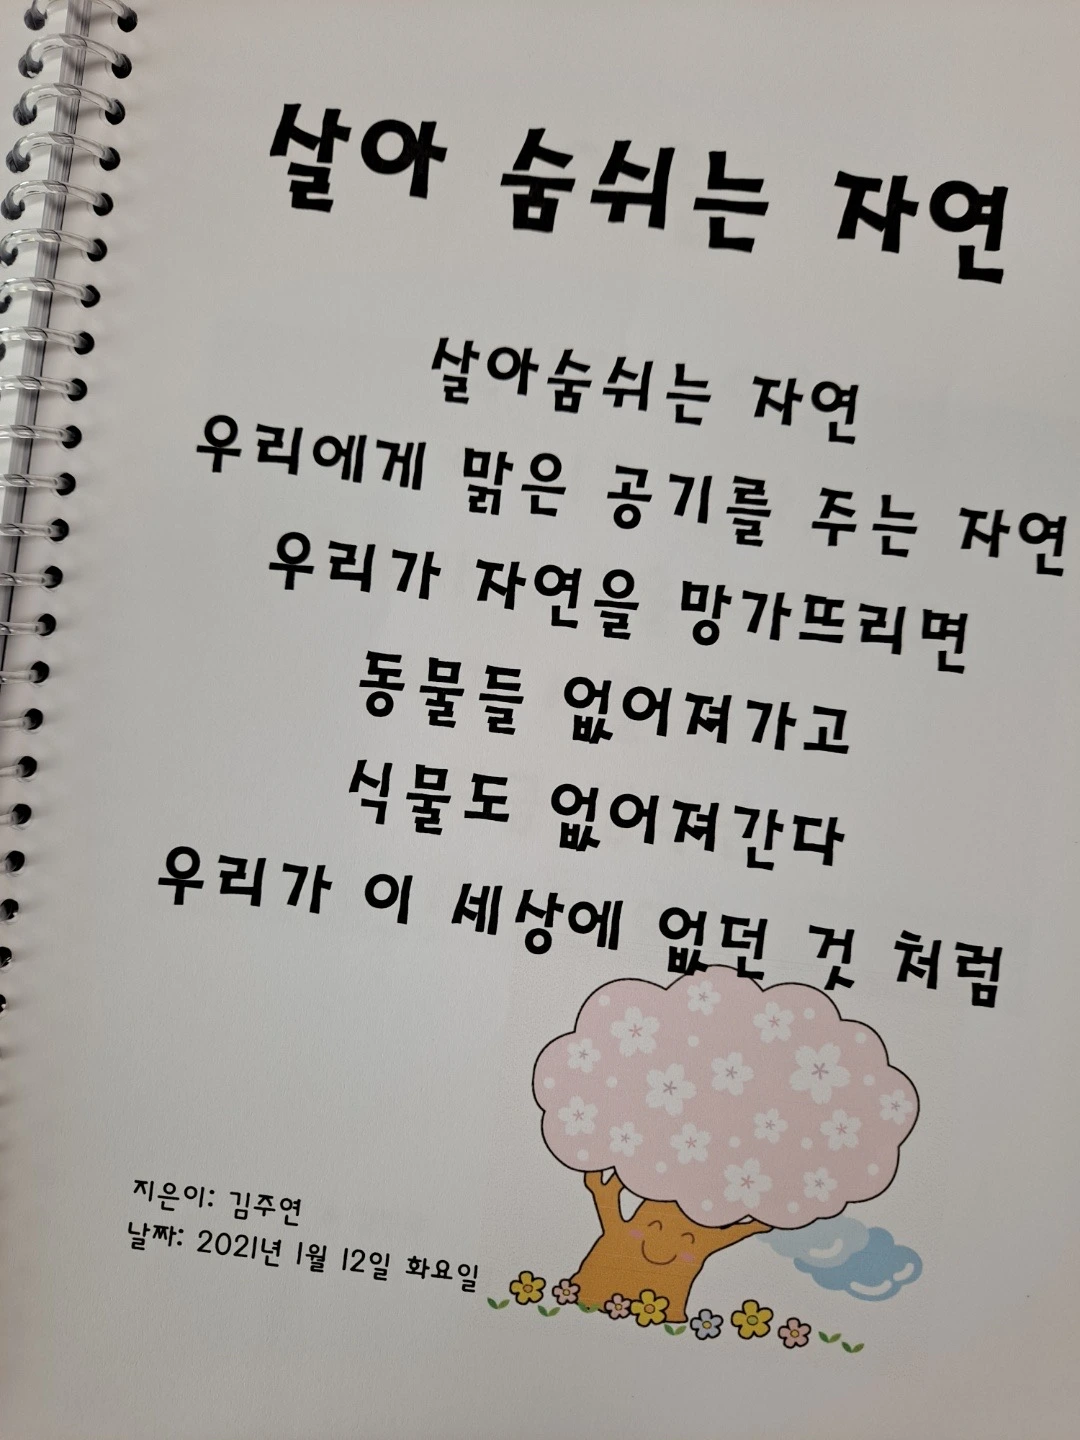 살아 숨쉬는 자연
살아숨쉬는 자연
우리에게 맑은 공기를 주는 자연
우리가 자연을 망가뜨리면
동물들 없어져가고
식물도 없어져간다
우리가 이 세상에 없던 것 처럼
지은이: 김주연
날짜: 2021년 1월 12일 화요일